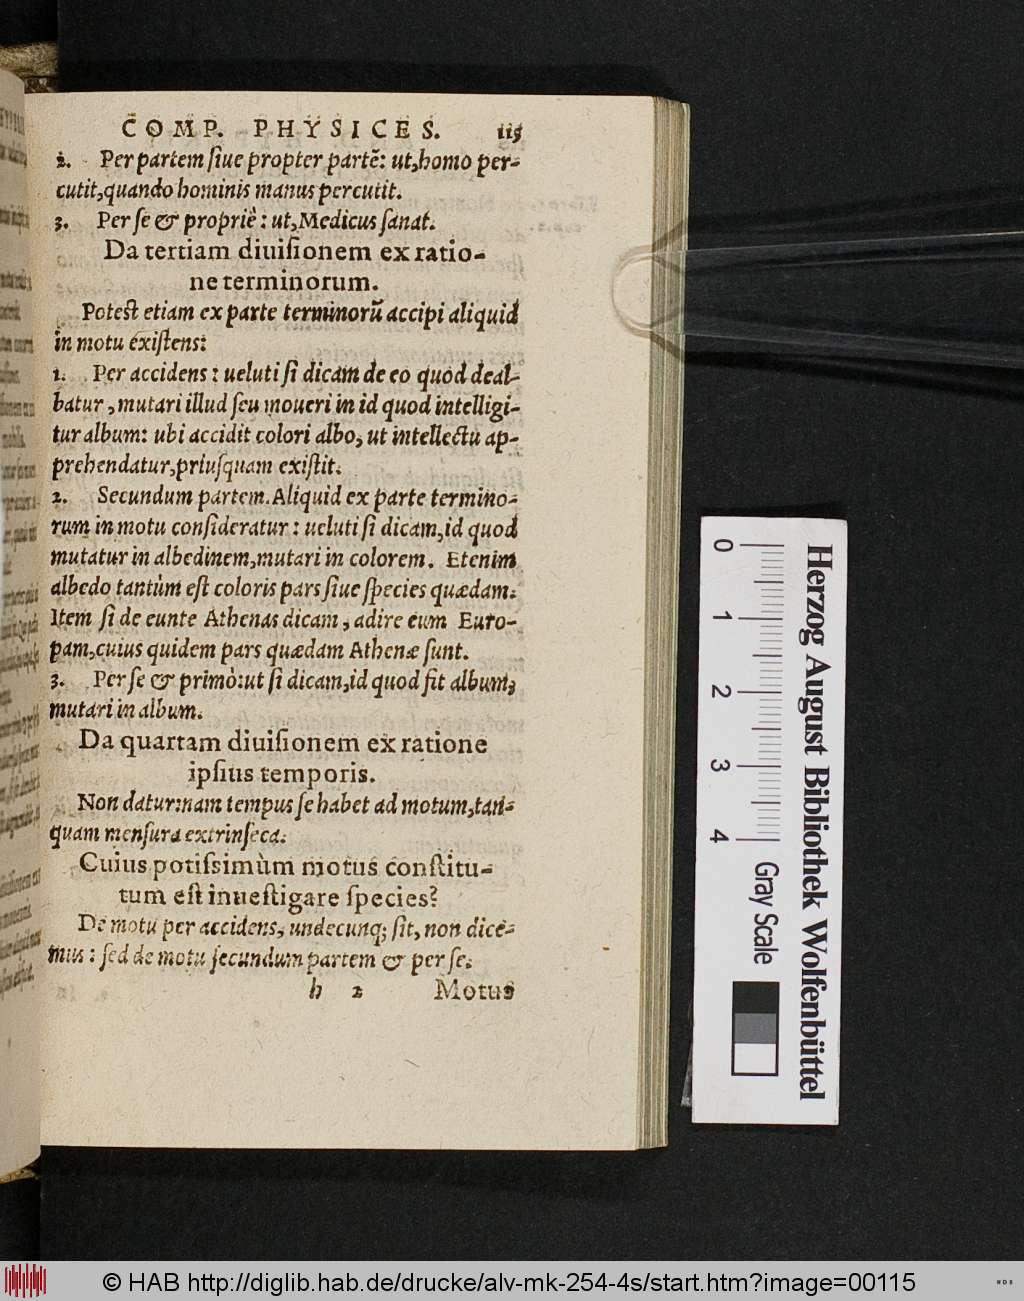 COMP. PHYSICES. 115
2. Per partem ſiue propter partē: ut,homo per-
cutit,quando hominis manus percutit.
3. Per ſe & propriè: ut,Medicus ſanat.
Da tertiam diuiſionem ex ratio-
ne terminorum.
Poteſt etiam ex parte terminorū accipi aliquid
in motu exiſtens:
1. Per accidens: ueluti ſi dicam de eo quod deal-
batur, mutari illud ſeu moueri in id quod intelligi-
tur album: ubi accidit colori albo, ut intellectu ap-
prehendatur,priuſquam exiſtit.
2. Secundum partem. Aliquid ex parte termino-
rum in motu conſideratur: ueluti ſi dicam,id quod
mutatur in albedinem,mutari in colorem. Etenim
albedo tantùm eſt coloris pars ſiue ſpecies quædam.
Item ſi de eunte Athenas dicam, adire eum Euro-
pam,cuius quidem pars quædam Athenæ ſunt.
3. Per ſe & primò:ut ſi dicam,id quod fit album,
mutari in album.
Da quartam diuiſionem ex ratione
ipſius temporis.
Non datur:nam tempus ſe habet ad motum,tan-
quam menſura extrinſeca.
Cuius potiſsimùm motus conſtitu-
tum eſt inueſtigare ſpecies?
De motu per accidens, undecunq; ſit, non dice-
mus: ſed de motu ſecundum partem & per ſe.
h 2 Motus
0 1 2 3 4
Herzog August Bibliothek Wolfenbüttel
Gray Scale
© HAB http://diglib.hab.de/drucke/alv-mk-254-4s/start.htm?image=00115